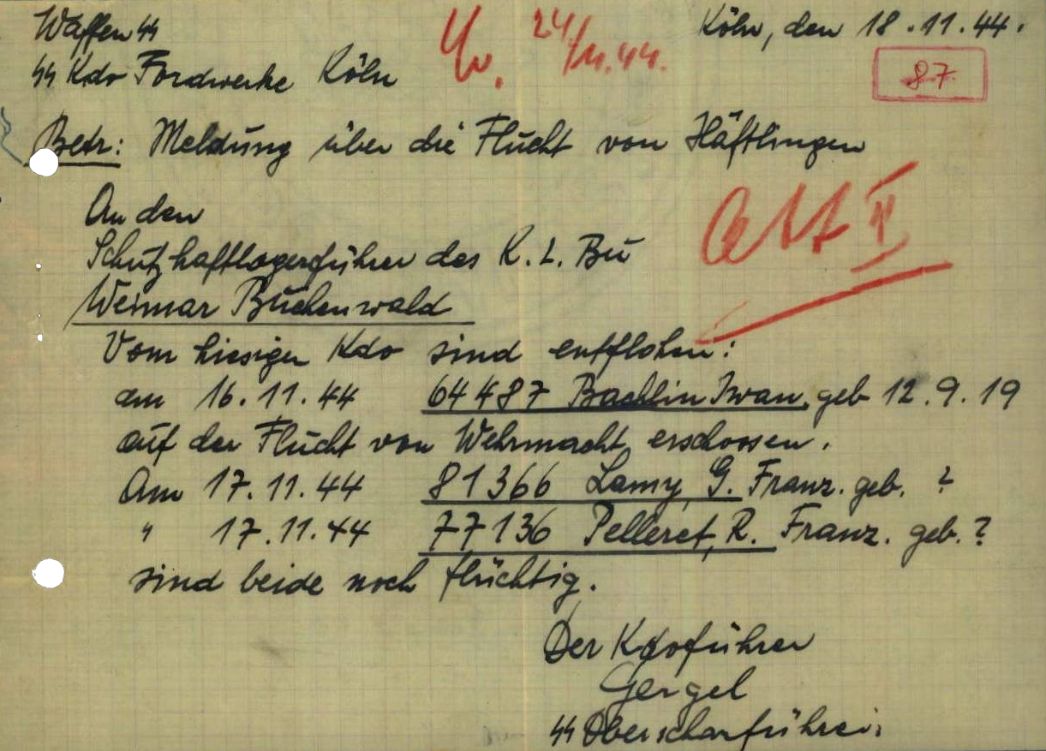 Waffen SS
Köln, den 18.11.44.
SS Kdo Fordwerke Köln
24/11.44.
87
Betr: Meldung über die Flucht von Häftlingen
An den
Schutzhaftlagerführer des K. L. Bu
Weimar Buchenwald
Vom hiesigen Kdo sind entflohen:
am 16.11.44 64487 Bachlin Iwan, geb 12.9.19
auf der Flucht von Wehrmacht erschossen.
Am 17.11.44 81366 Lamy, G. Franz. geb. ?
" 17.11.44 77136 Pelleret, R. Franz. geb. ?
sind beide noch flüchtig.
Der Kdoführer
Gergel
SS Oberscharführer.